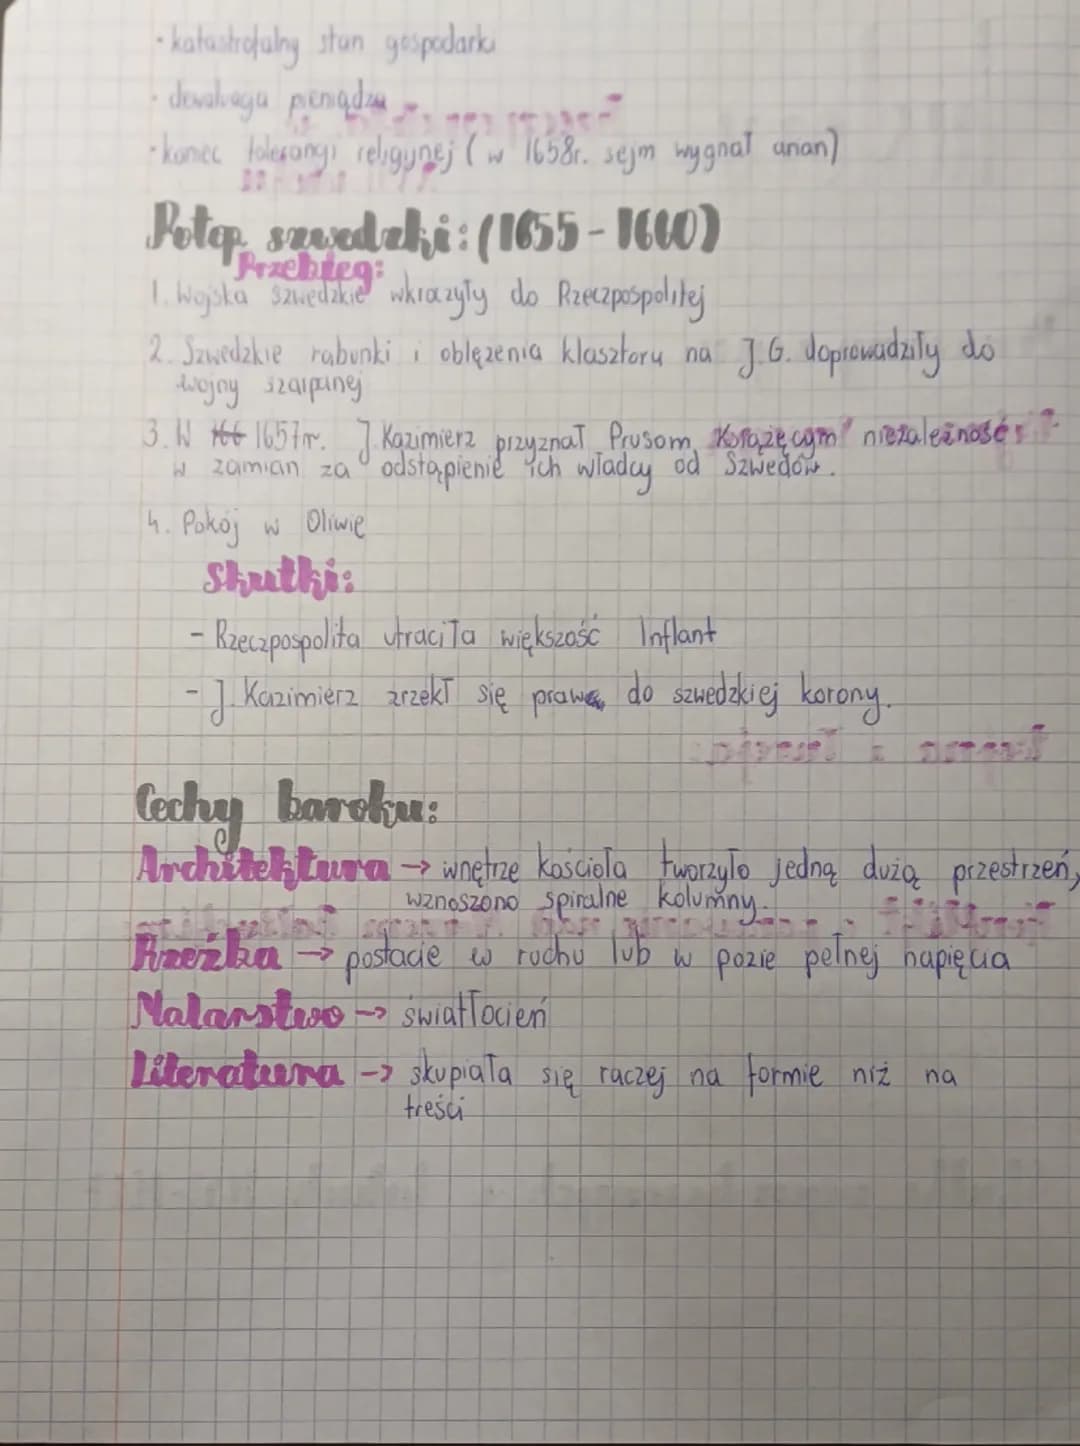 • katastrofalny stan gospodarki
• dewaluacja pieniądza
• koniec tolerancji religijnej ( w 1658r. sejm wygnał arian)
Potop szwedzki: (1655 - 1660)
Przebieg:
1. Wojska szwedzkie wkroczyły do Rzeczpospolitej
2. Szwedzkie rabunki i oblężenia klasztoru na J.G. doprowadziły do
wojny szarpanej
3. W 1657r. J. Kazimierz przyznał Prusom Książęcym niezależność
w zamian za odstąpienie ich władcy od Szwedów.
4. Pokój w Oliwie
Skutki:
- Rzeczpospolita utraciła większość Inflant
- J. Kazimierz zrzekł się prawa do szwedzkiej korony.
Cechy baroku:
Architektura → wnętrze kościoła tworzyło jedną dużą przestrzeń,
wznoszono spiralne kolumny.
Rzeźba → postacie w ruchu lub w pozie pełnej napięcia
Malarstwo → światłocień
Literatura → skupiała się raczej na formie niż na
treści